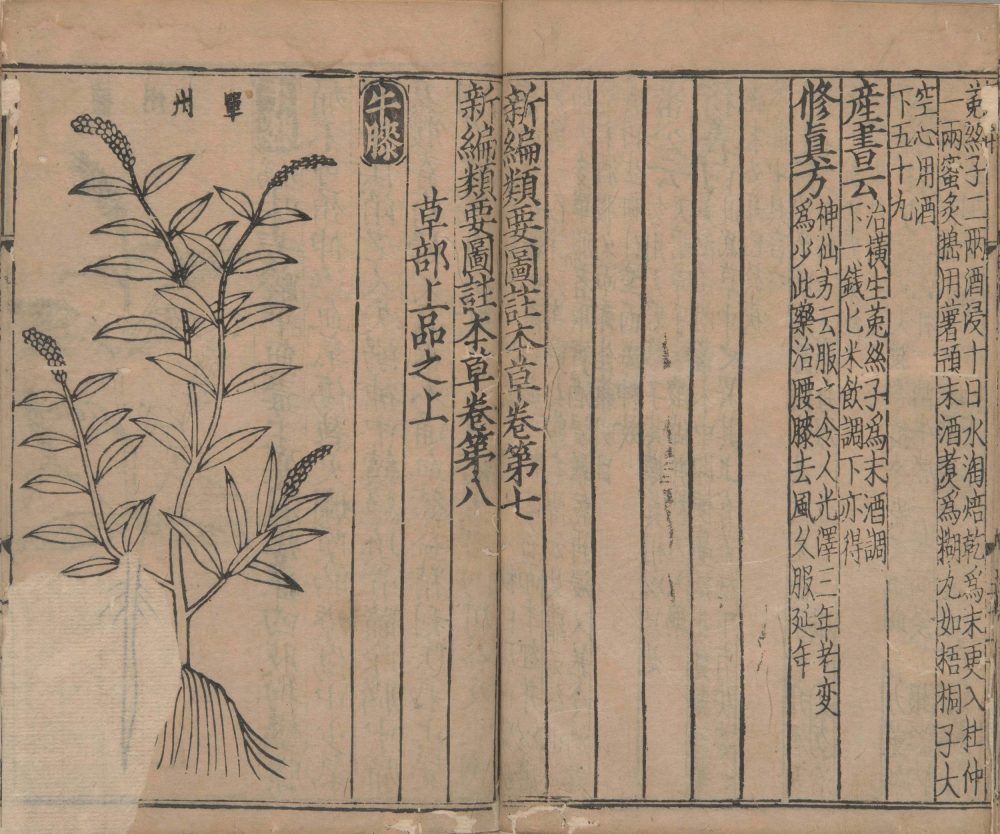 菟絲子二兩酒浸十日水淘焙乾爲末更入杜仲
一兩蜜炙搗用薯蕷末酒煑爲糊丸如梧桐子大
空心用酒
下五十九
産書云
治橫生菟絲子爲末酒調
下一錢匕米飲調下亦得
修眞方
神仙方云服之令人光澤三年老変
爲少此藥治腰膝去風久服延年
新編類要圖註本草卷第七
新編類要圖註本草卷第八
草部上品之上
牛膝
單州